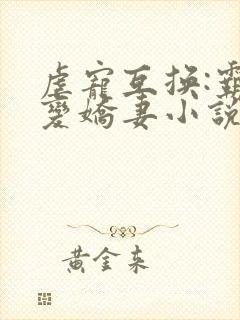 虐寵互換:霸
愛嬌妻小說
黃金来